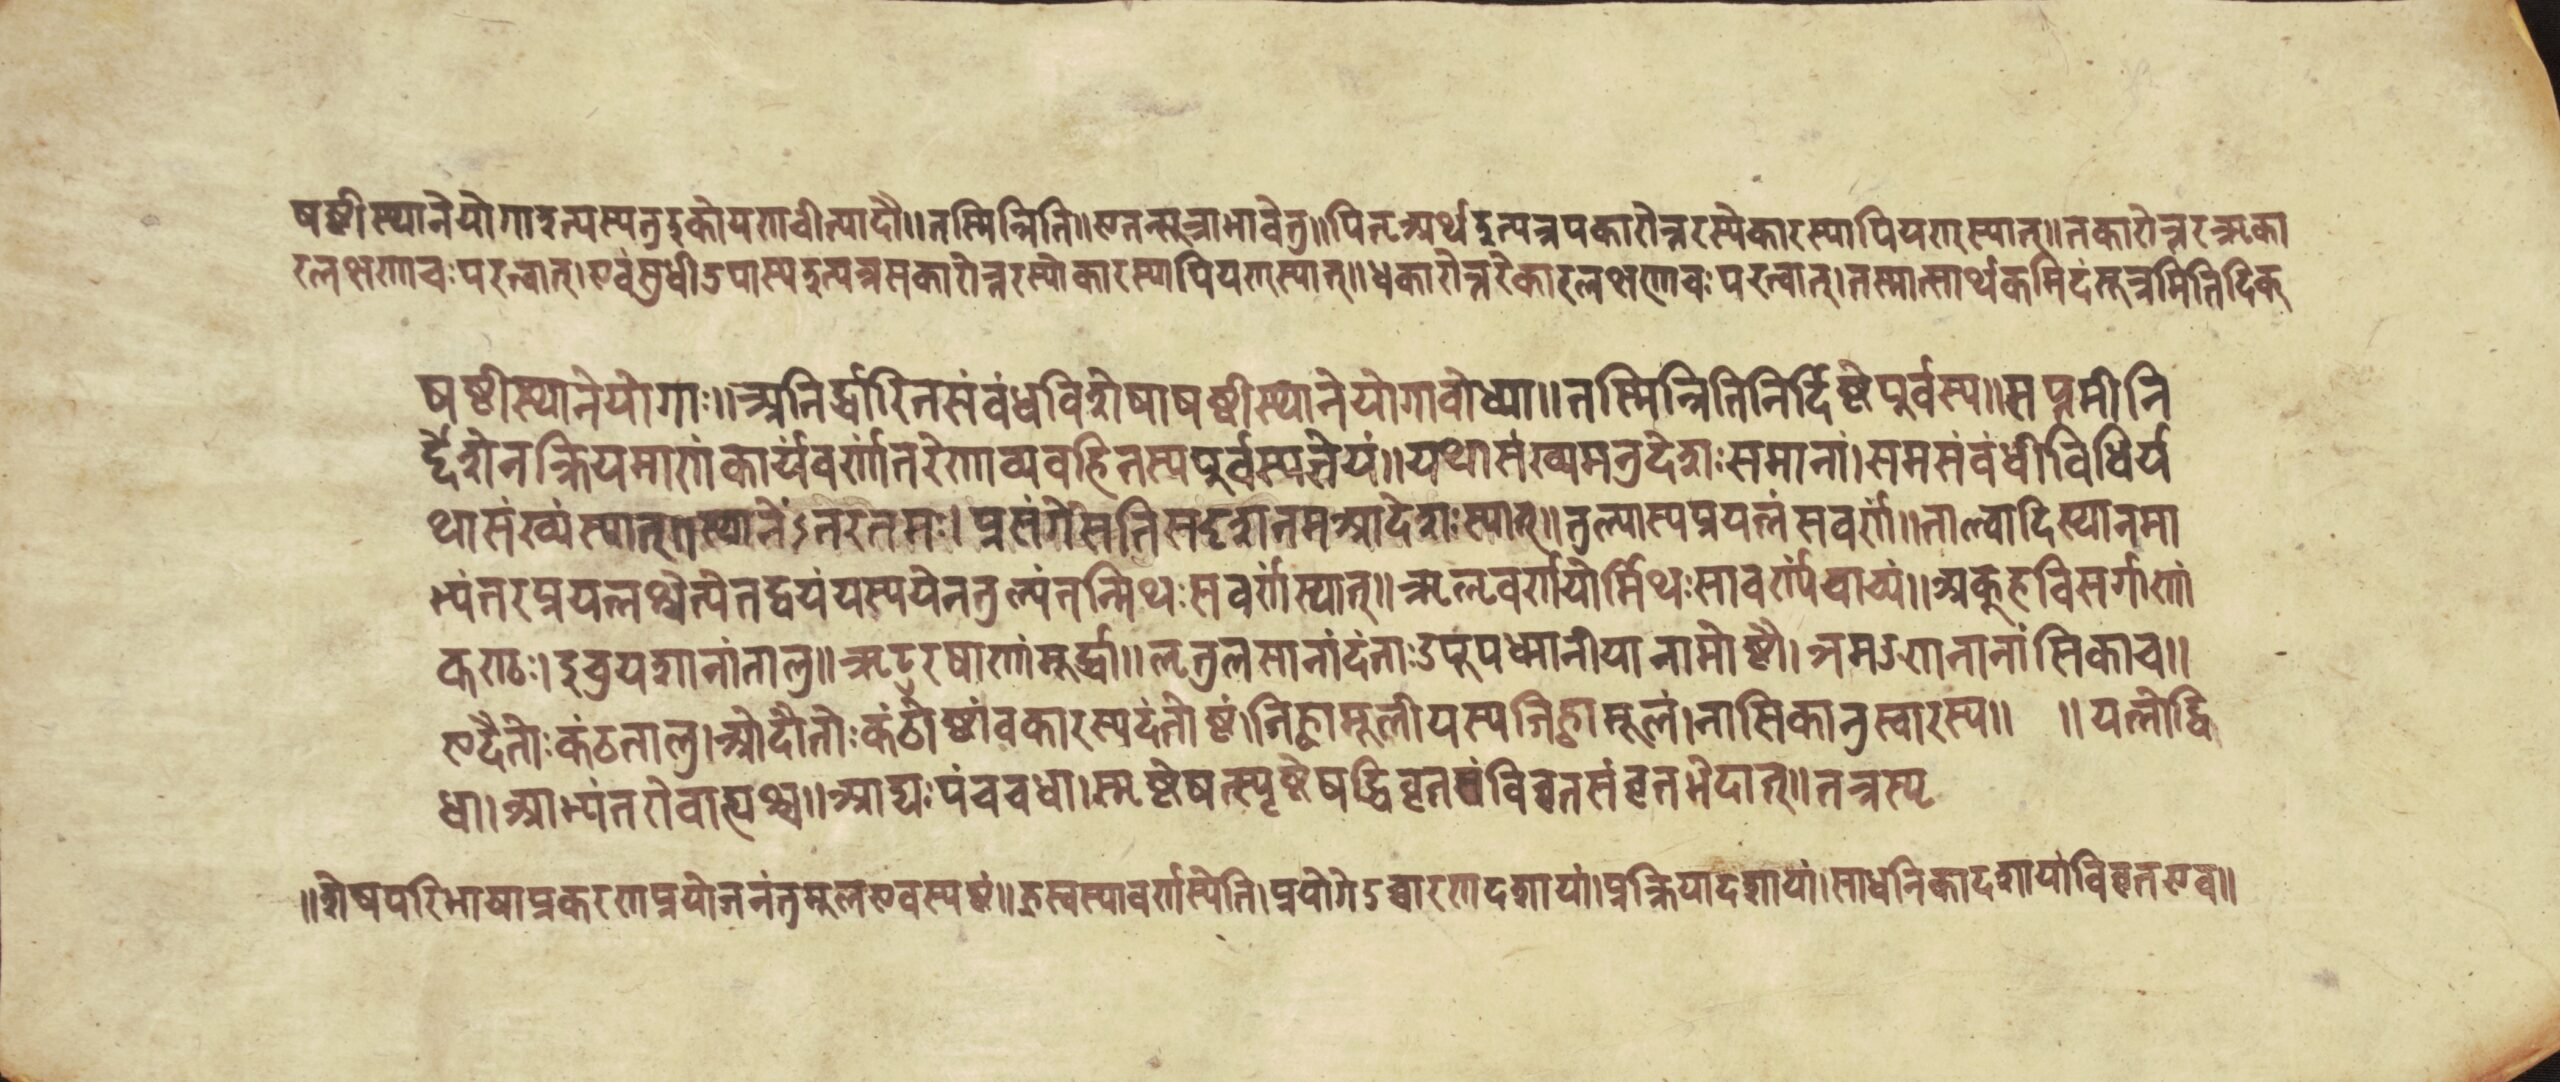 षष्ठीस्थानेयोगादुत्पस्यतुइकोयणचीत्यादौ॥तस्मिन्निति॥एतत्सूत्राभावेतु॥पितृअर्थइत्यत्रपकारोत्तरस्येकारस्यापियण्स्यात्॥तकारोत्तरऋका
रलक्षणाचःपरत्वात्।एवंसुधीउपास्यइत्यत्रसकारोत्तरस्योकारस्यापियण्स्यात्॥धकारोत्तरईकारलक्षणाचःपरत्वात्।तस्मात्सार्थकमिदंसूत्रमितिदिक्
षष्ठीस्थानेयोगाः॥अनिर्द्धारितसंबंधविशेषाषष्ठीस्थानेयोगाबोध्या॥तस्मिन्नितिनिर्दिष्टेपूर्वस्य॥सप्तमीनि
र्द्देशेनक्रियमाणंकार्यंवर्णांतरेणाव्यवहितस्यपूर्वस्यज्ञेयं॥यथासंख्यमनुदेशःसमानां।समसंबंधीविधिर्य
थासंख्यंस्यात्तस्थानेंऽतरतमः।प्रसंगेसतिसदृशतमआदेशःस्यात्॥तुल्यास्यप्रयत्नंसवर्णं॥ताल्वादिस्थानमा
भ्यंतरप्रयत्नश्चेत्येतद्वयंयस्ययेनतुल्यंतन्मिथःसवर्णंस्यात्॥ऋलृवर्णयोर्मिथःसावर्ण्यंवाच्यं॥अकुहविसर्गाणां
कण्ठः।इचुयशानांतालु॥ऋटुरषाणांमूर्द्धा॥लृतुलसानांदंताःउपूपध्मानीयानामोष्ठौ।ञमङणनानांसिकाच॥
एदैतोःकंठतालु।ओदौतोःकंठोष्ठांवकारस्यदंतोष्टं।जिह्वामूलीयस्यजिह्वामूलं।नासिकानुस्वारस्य॥ ॥यत्नोद्वि
धा।आभ्यंतरोबाह्यश्च॥आद्यःपंचधा।स्पृष्टेषत्स्पृष्टेषद्विवृतविवृतसंवृतभेदात्॥तत्रस्पृ
॥शेषपरिभाषाप्रकरणप्रयोजनंतुमूलएवस्पष्टं॥ह्रस्वस्यावर्णस्येति।प्रयोगेउच्चारणदशायां।प्रक्रियादशायां।साधनिकादशायांविवृतएव॥